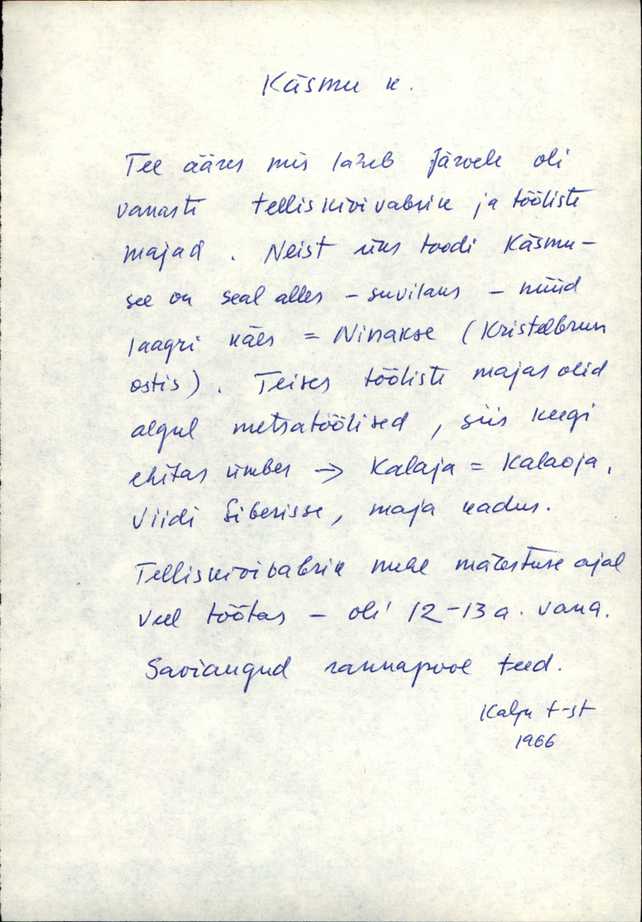 Käsmu k.
Tee ääres mis läheb Järvele oli
vanasti telliskivivabrik ja tööliste
majad. Neist üks toodi Käsmu –
see on seal alles – suvilaks – nüüd
laagri käes = Ninakse (Kristelbrun
ostis). Teises tööliste majas olid
algul metsatöölised, siis keegi
ehitas ümber → Kalaja = Kalaoja,
Viidi Siberisse, maja kadus.
Telliskivivabrik mehe mälestuse ajal
veel töötas – oli 12–13 a. vana.
Saviaugud rannapool teed.
Kalju t-st
1966